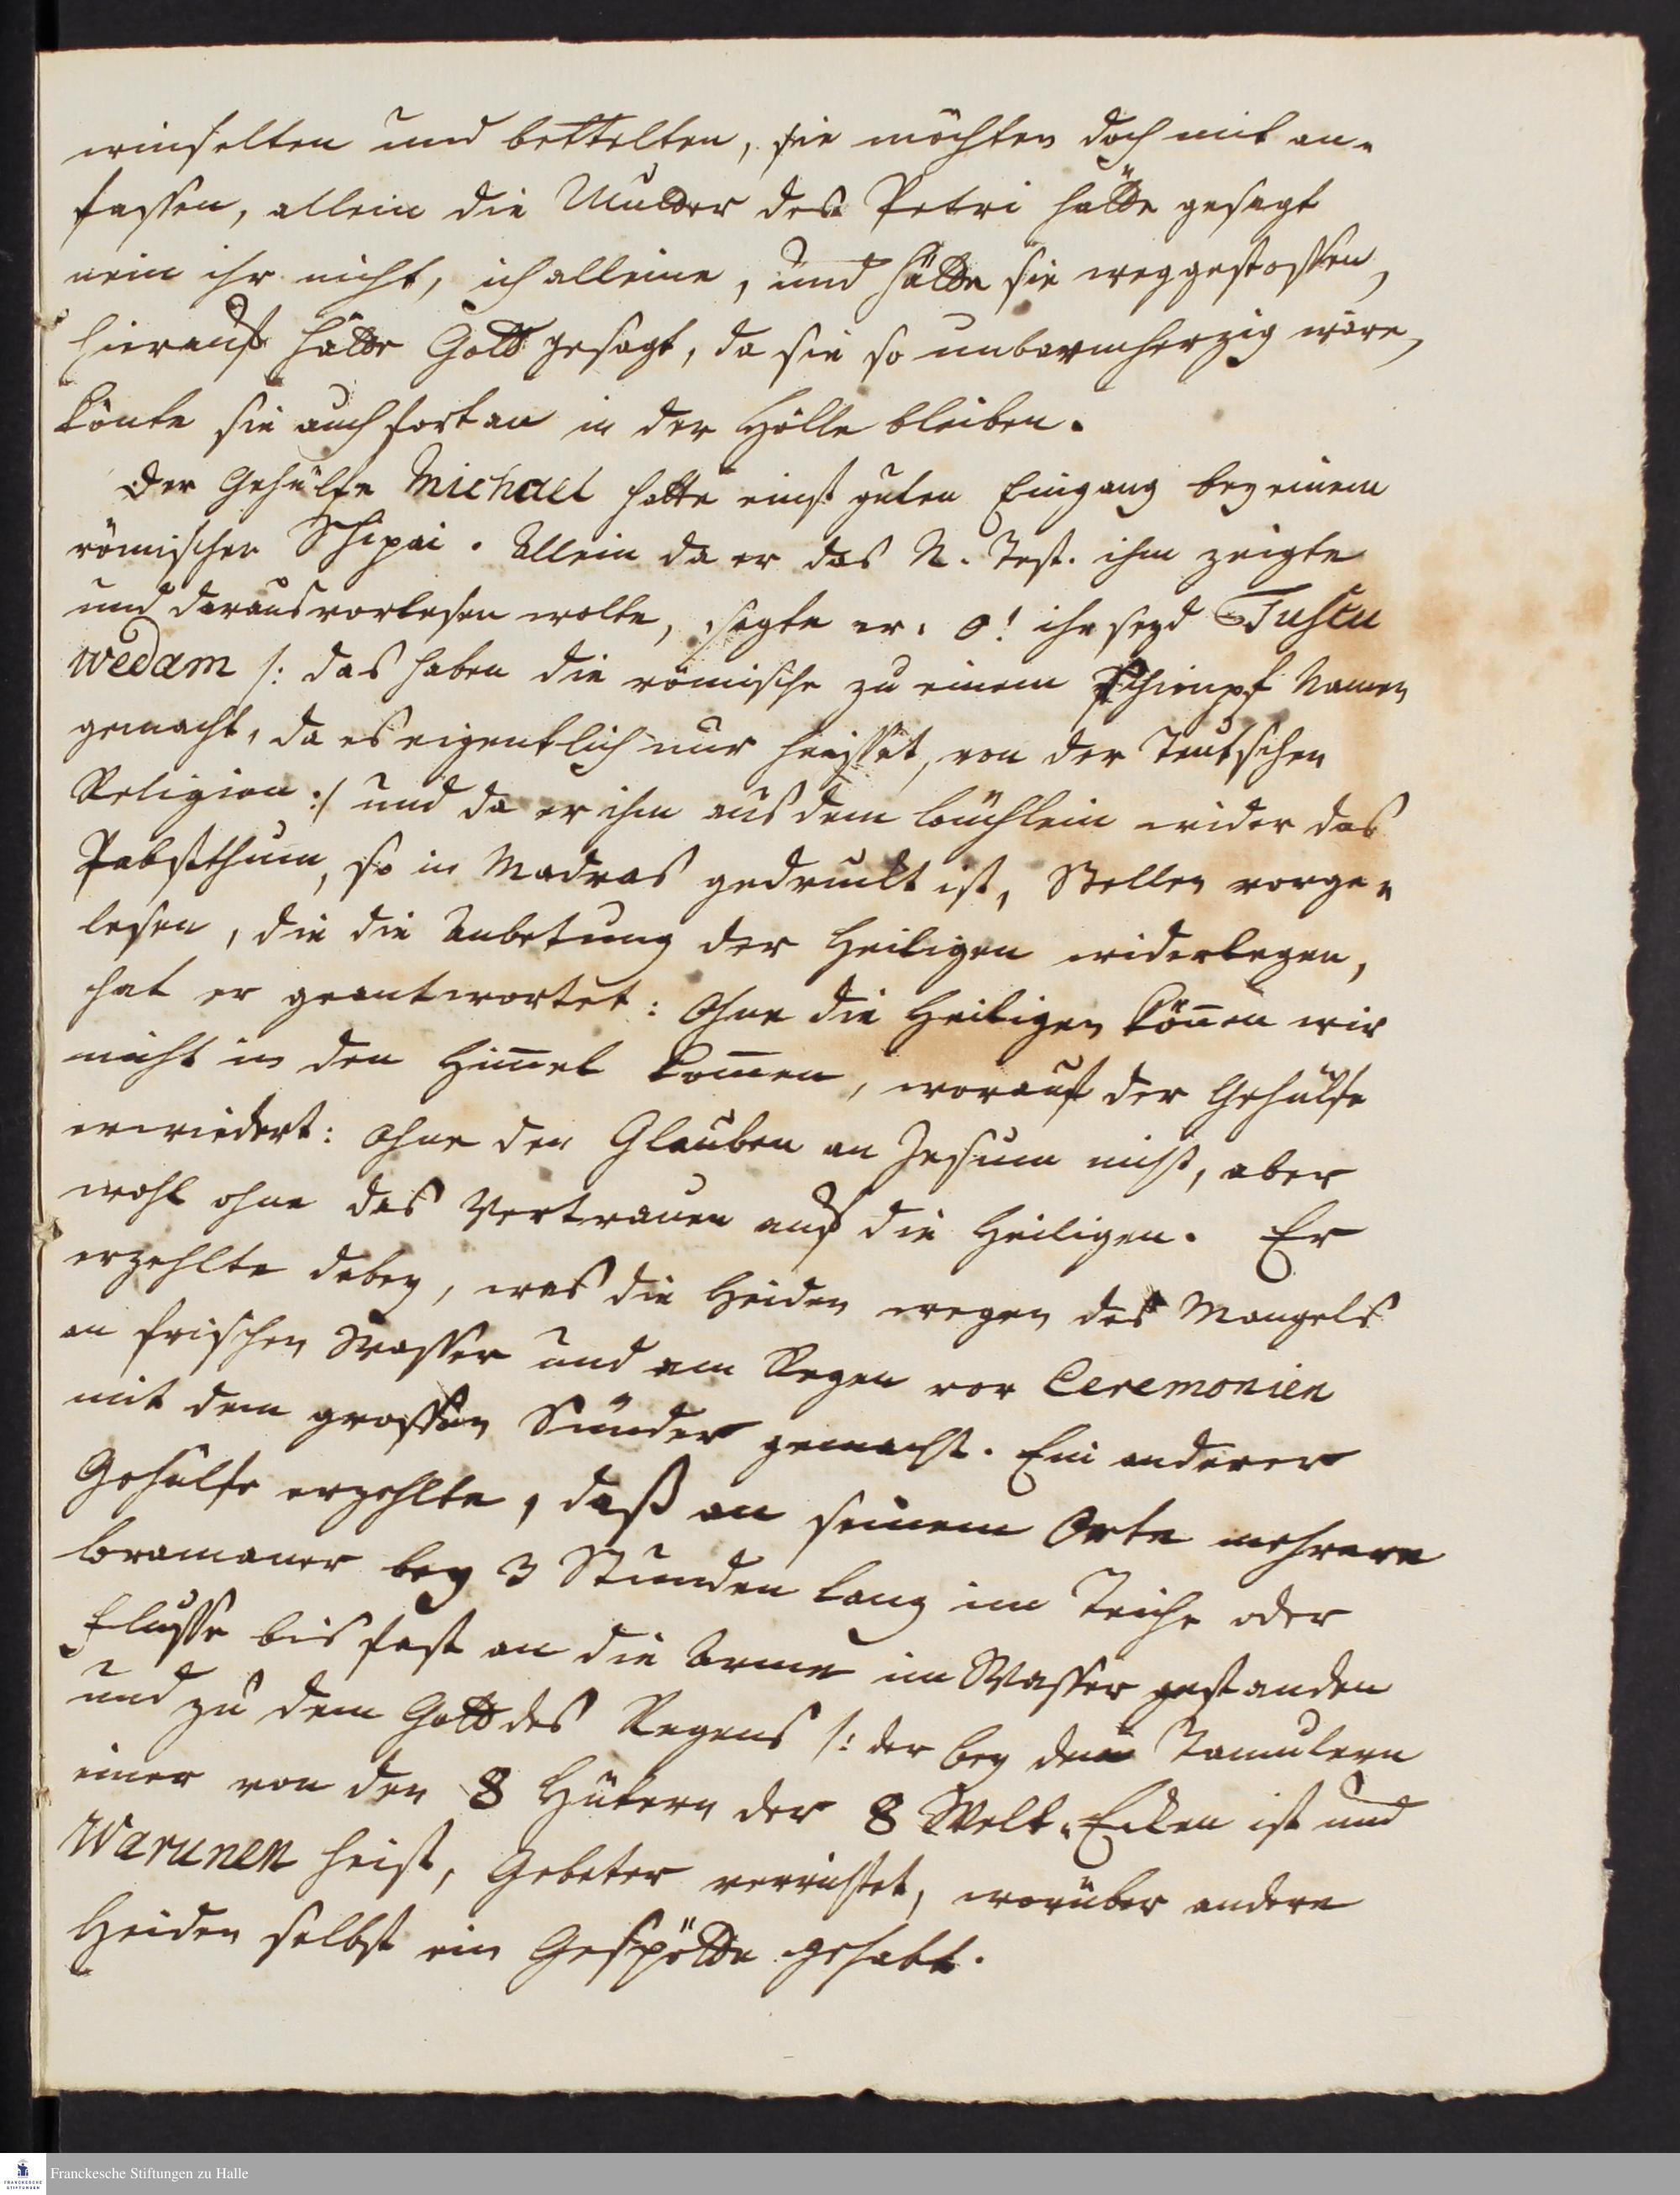 winselten und bettelten, sie möchten doch mit an-
fassen, allein die Mutter des Petri hätte gesagt
nein ihr nicht, ich alleine, und hätte sie weggestossen,
hierauf hätte Gott gesagt, da sie so unbarmherzig wäre,
könte sie auch fortan in der Hölle bleiben.
Der Gehülfe Michael hatte einst guten Eingang bey einem
römischen Schipai. Allein da er das N. Test. ihm zeigte
und daraus vorlesen wolte, sagte er: O! ihr seyd Tuscu
wedam /: das haben die römische zu einem Schimpf Namen
gemacht, da es eigentlich nur heisset, von der Teutschen
Religion :/ und da er ihm aus dem büchlein wider das
Pabstthum, so in Madras gedruckt ist, Stellen vorge-
lesen, die die Anbetung der Heiligen widerlegen,
hat er geantwortet: Ohne die Heiligen kön̄en wir
nicht in den Him̄el kom̄en, worauf der Gehülfe
erwiedert: Ohne den Glauben an Jesum nicht, aber
wohl ohne das Vertrauen auf die Heiligen. Er
erzehlte dabey, was die Heiden wegen des Mangels
an frischen Wasser und am Regen vor Ceremonien
mit dem grossen Sünder gemacht. Ein anderer
Gehülfe erzehlte, daß an seinem Orte mehrere
bramaner bey 3 Stunden lang im Teiche oder
Flusse bis fast an die Arme im Wasser gestanden
und zu dem Gott des Regens /: der bey den Tamulern
einer von den 8 Hütern der 8 Welt-Ecken ist und
Warunen heist, Gebeter verrichtet, worüber andere
Heiden selbst ein Gespötte gehabt.
Franckesche Stiftungen zu Halle
FRANCKESCHE
STIFTUNGEN